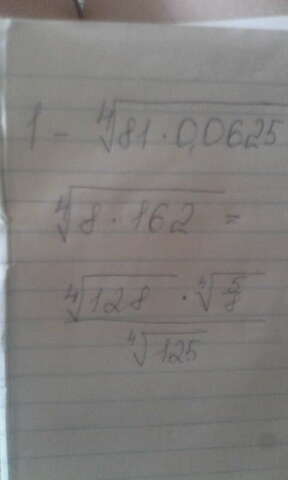 1 - ∜81 · 0,0625
∜8 · 162 =
∜128 · ∜5/8
∜125